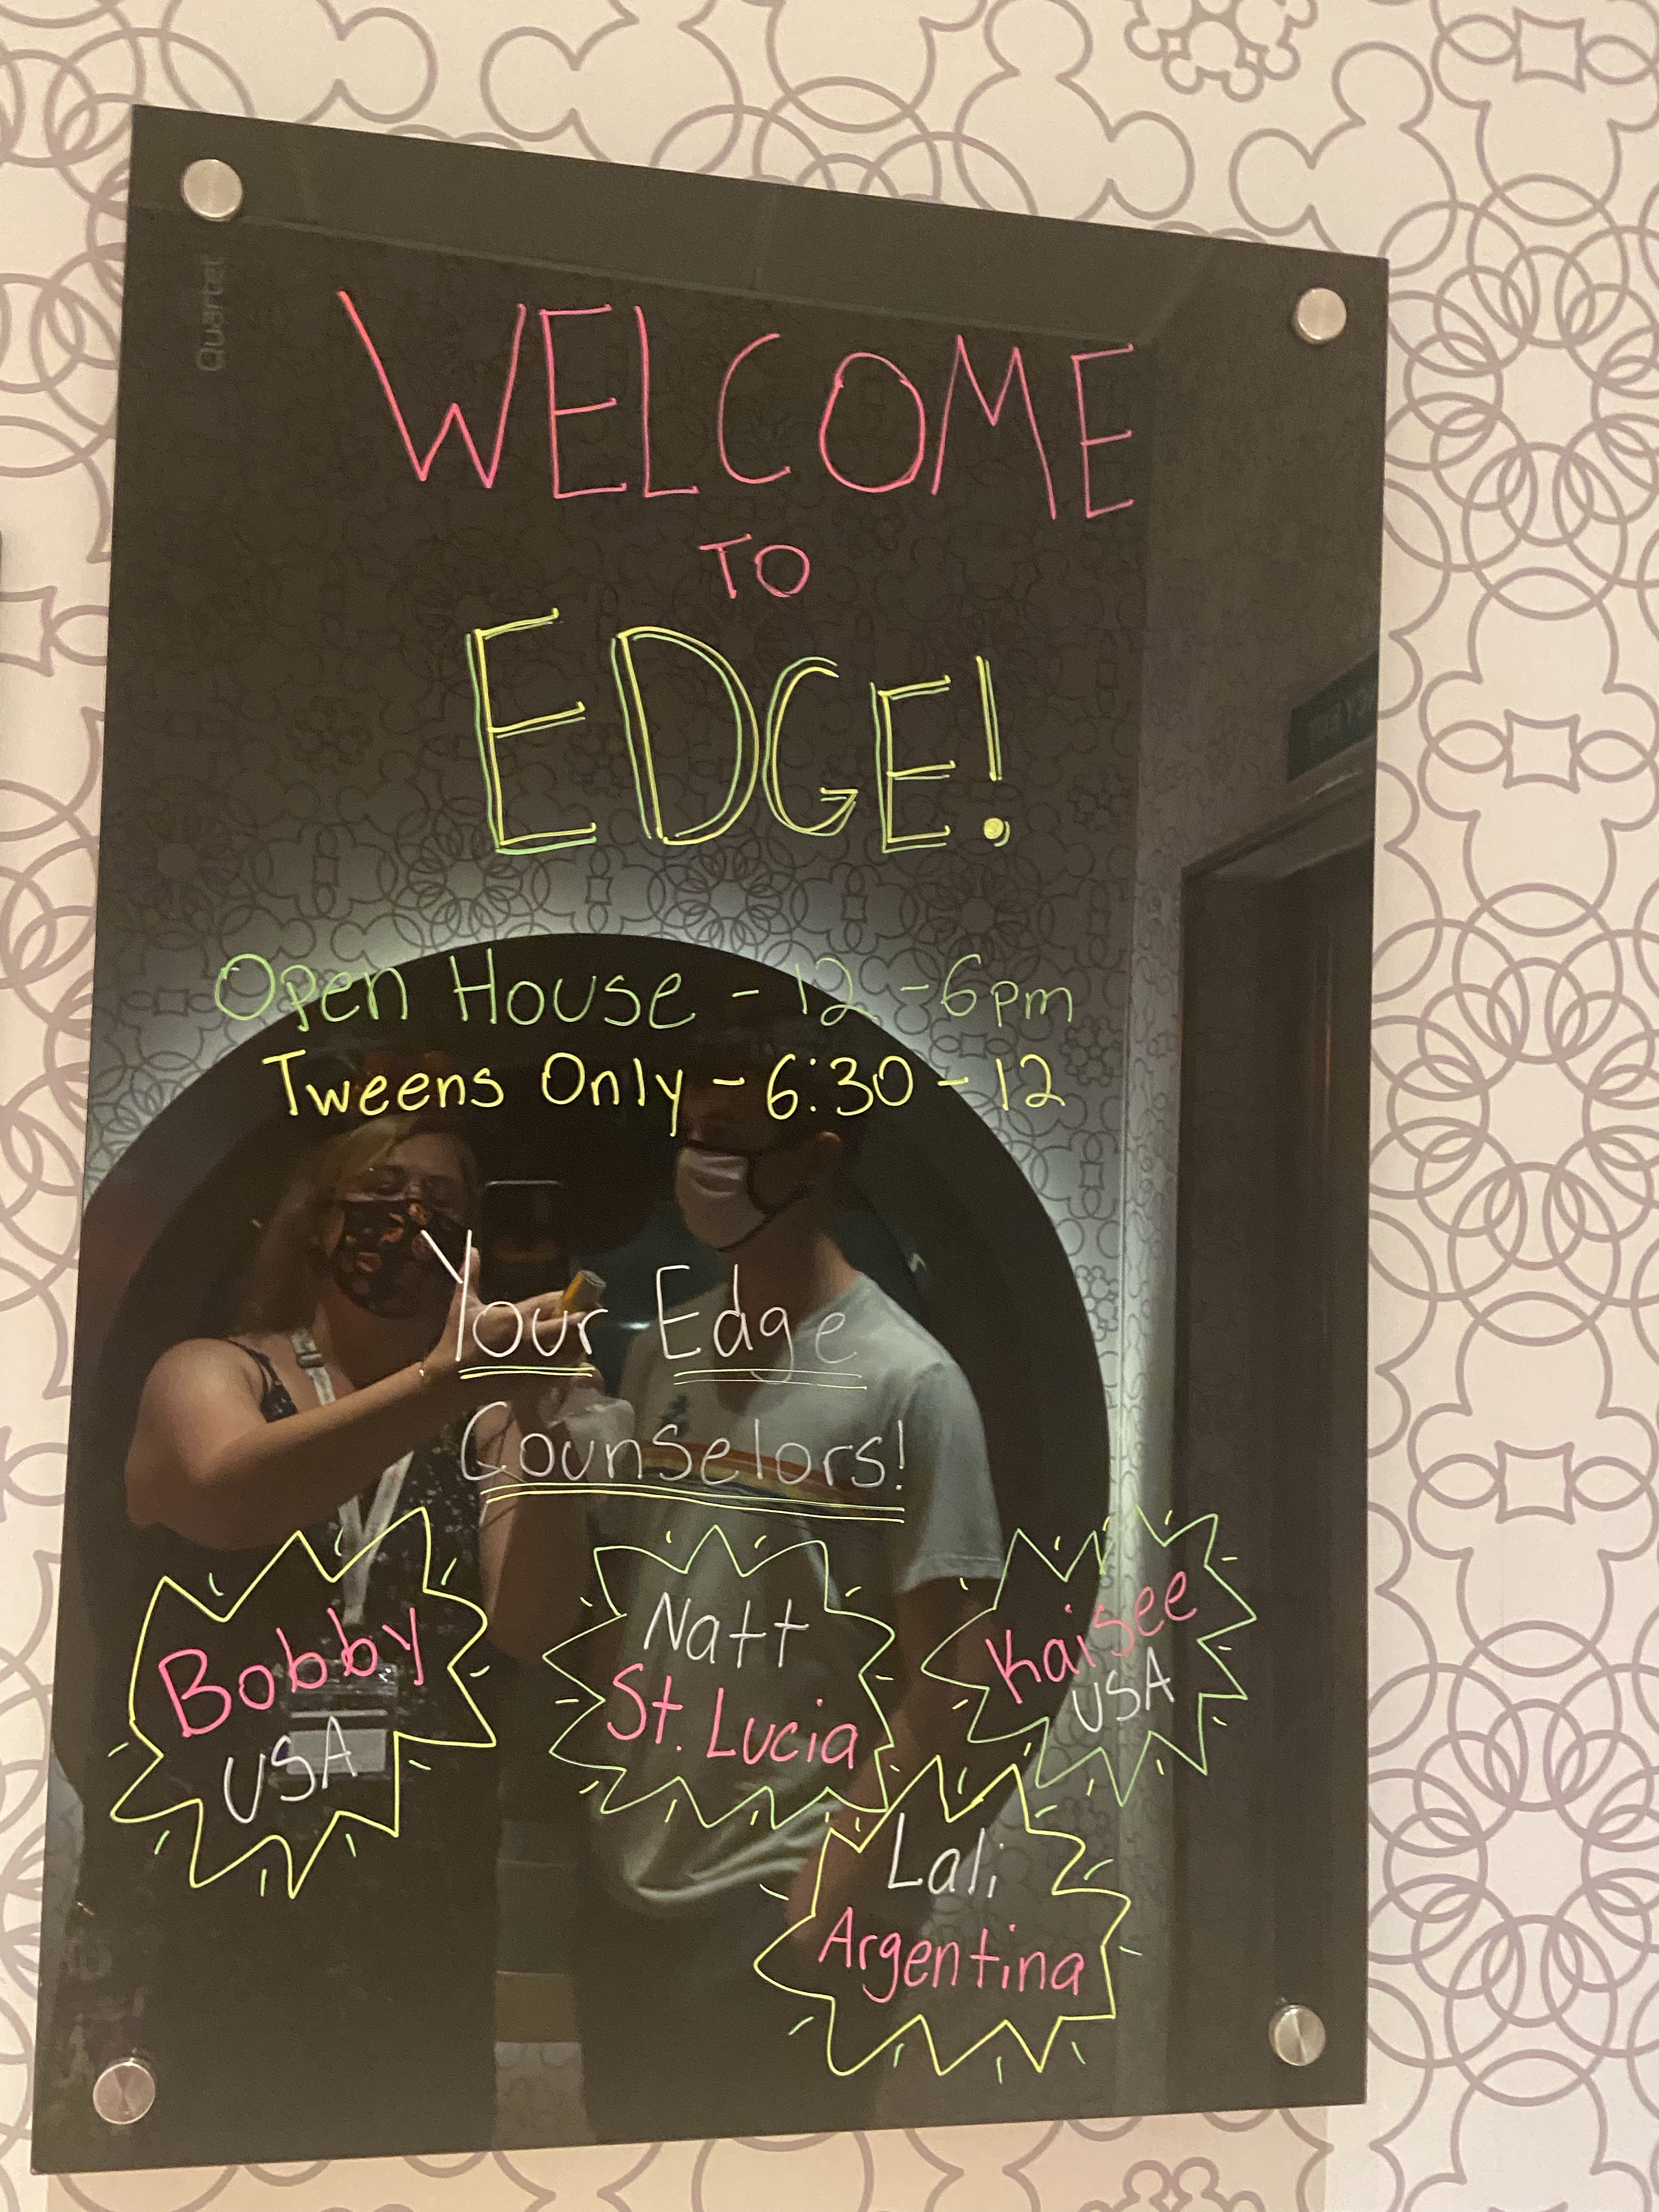 Quartet
WELCOME
TO
EDGE!
Open House - 12 - 6pm
Tweens Only - 6:30 - 12
Your Edge
Counselors!
Bobby
USA
Natt
St. Lucia
Kaisee
USA
Lali
Argentina